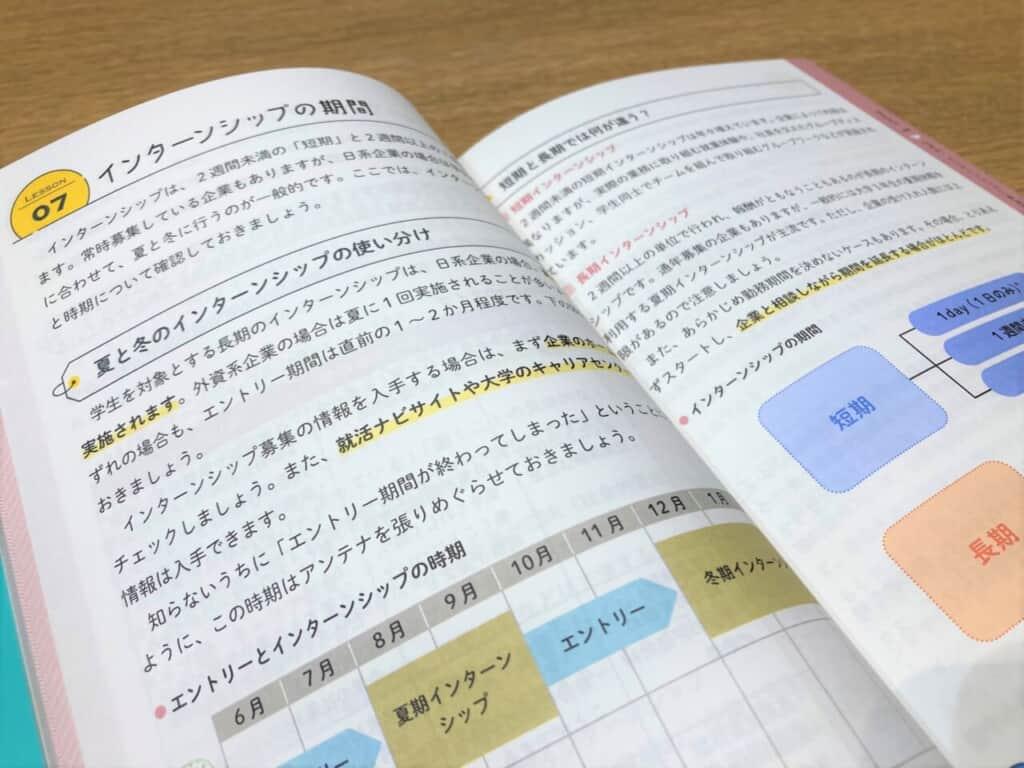 LESSON
07
インターンシップの期間
インターンシップは、2週間未満の「短期」と2週間以上の
ます。常時募集している企業もありますが、日系企業の場合は
に合わせて、夏と冬に行うのが一般的です。ここでは、インタ
と時期について確認しておきましょう。
夏と冬のインターンシップの使い分け
学生を対象とする長期のインターンシップは、日系企業の場合
実施されます。外資系企業の場合は夏に1回実施されることが多
ずれの場合も、エントリー期間は直前の1〜2か月程度です。下の
おきましょう。
インターンシップ募集の情報を入手する場合は、まず企業の
チェックしましょう。また、就活ナビサイトや大学のキャリアセン
情報は入手できます。
知らないうちに「エントリー期間が終わってしまった」ということ
ように、この時期はアンテナを張りめぐらせておきましょう。
●エントリーとインターンシップの時期
6月 7月 8月 9月 10月 11月 12月 1月
リー
夏期インターン
シップ
エントリー
冬期インターン
短期と長期では何が違う?
短期インターンシップ
2週間未満の短期インターンシップは年々増えています。
なりますが、実際の業務に取り組む就業体験や、社員を交えたグループディス
カッション、学生同士でチームを組んで取り組むグループワークなどが実施され
います。
長期インターンシップ
2週間以上の単位で行われ、報酬がともなうこともあるのが長期のインターン
シップです。通年募集の企業もありますが、一般的には大学3年生の夏期休暇を
利用する夏期インターンシップが主流です。ただし、企業の受け入れ人数に上
限があるので注意しましょう。
また、あらかじめ勤務期間を決めないケースもあります。その場合、とりあえ
ずスタートし、企業と相談しながら期間を延長する場合がほとんどです。
●インターンシップの期間
短期
1day(1日のみ)
1週間
長期